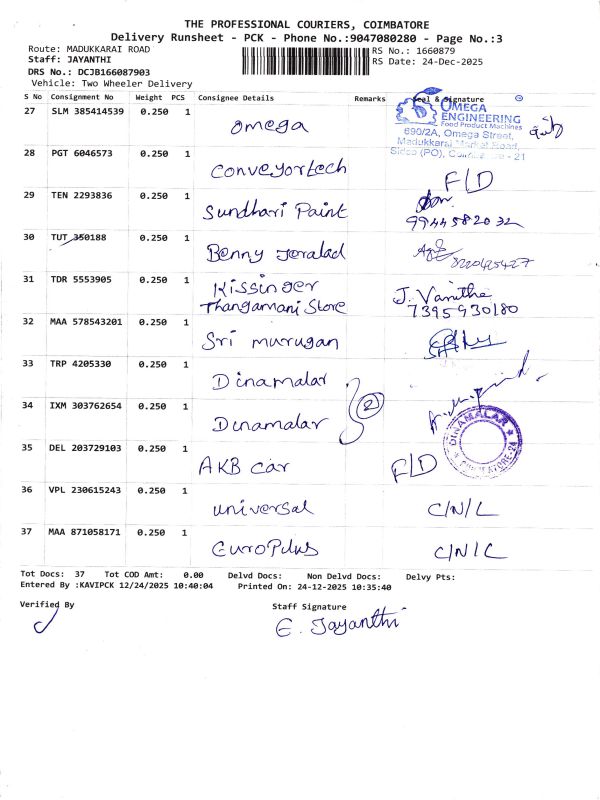 THE PROFESSIONAL COURIERS, COIMBATORE
Delivery Runsheet - PCK - Phone No.:9047080280 - Page No.:3
Route: MADUKKARAI ROAD RS No.: 1660879
Staff: JAYANTHI RS Date: 24-Dec-2025
DRS No.: DCJB166087903
Vehicle: Two Wheeler Delivery
S No Consignment No Weight PCS Consignee Details Remarks Seal & Signature
27 SLM 385414539 0.250 1 Omega
OMEGA
ENGINEERING
Food Product Machines
690/2A, Omega Street,
Madukkarai Market Road,
Sidco (PO), - 21
28 PGT 6046573 0.250 1 Conveyortech F/D
29 TEN 2293836 0.250 1 Sundhari Paint
9944582032
30 TUT 350188 0.250 1 Benny Joralad 8220425427
31 TDR 5553905 0.250 1 Kissinger
Thangamani Store J. Vanitha
7395930180
32 MAA 578543201 0.250 1 Sri murugan
33 TRP 4205330 0.250 1 Dinamalar
34 IXM 303762654 0.250 1 Dinamalar 2
DINAMALAR
COIMBATORE-24
35 DEL 203729103 0.250 1 AKB Car F/D
36 VPL 230615243 0.250 1 universal C/N/L
37 MAA 871058171 0.250 1 EuroPlus C/N/C
Tot Docs: 37 Tot COD Amt: 0.00 Delvd Docs: Non Delvd Docs: Delvy Pts:
Entered By :KAVIPCK 12/24/2025 10:40:04 Printed On: 24-12-2025 10:35:40
Verified By Staff Signature
E. Jayanthi